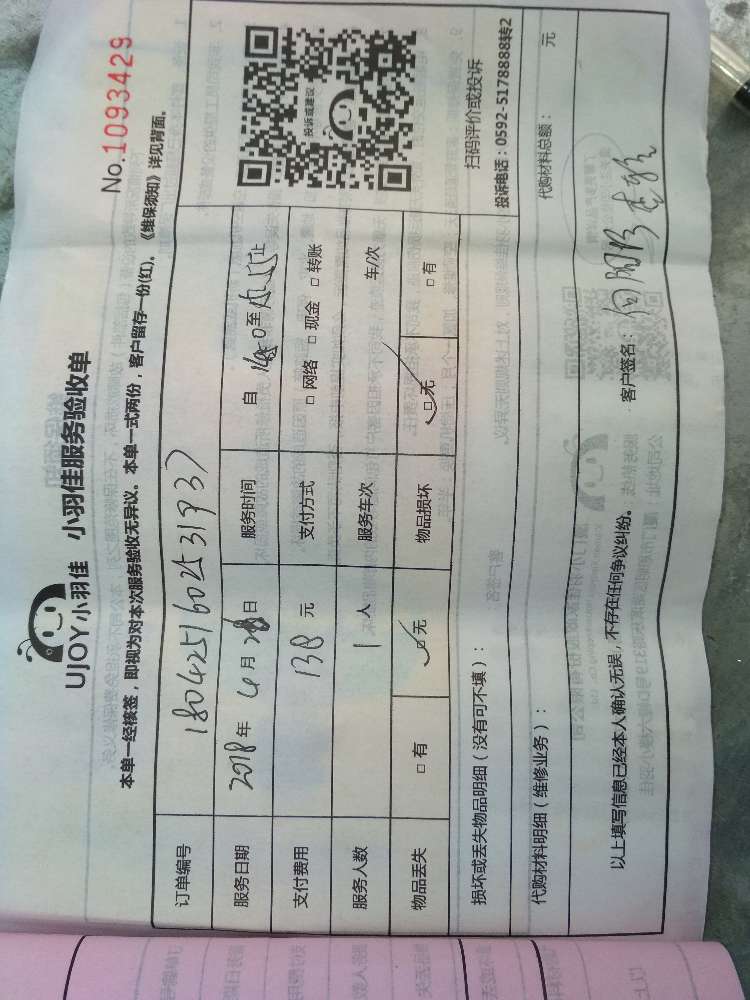 No.1093429
UJOY小羽佳 小羽佳服务验收单
本单一经核签，即视为对本次服务验收无异议。本单一式两份，客户留存一份(红)。《维保须知》详见背面。
订单编号 1804251602531937
服务日期 2018年 4月 28日 服务时间 自 至 15:55止
支付费用 138 元 支付方式 □ 网络 □ 现金 □ 转账
服务人数 1 人 服务车次 车/次
物品丢失 □ 有 □ 无 物品损坏 □ 无 □ 有
投诉或建议
扫码评价或投诉
投诉电话：0592-5178888转2
损坏或丢失物品明细（没有可不填）：
代购材料明细（维修业务）： 代购材料总额： 元
以上填写信息已经本人确认无误，不存在任何争议纠纷。 客户签名：